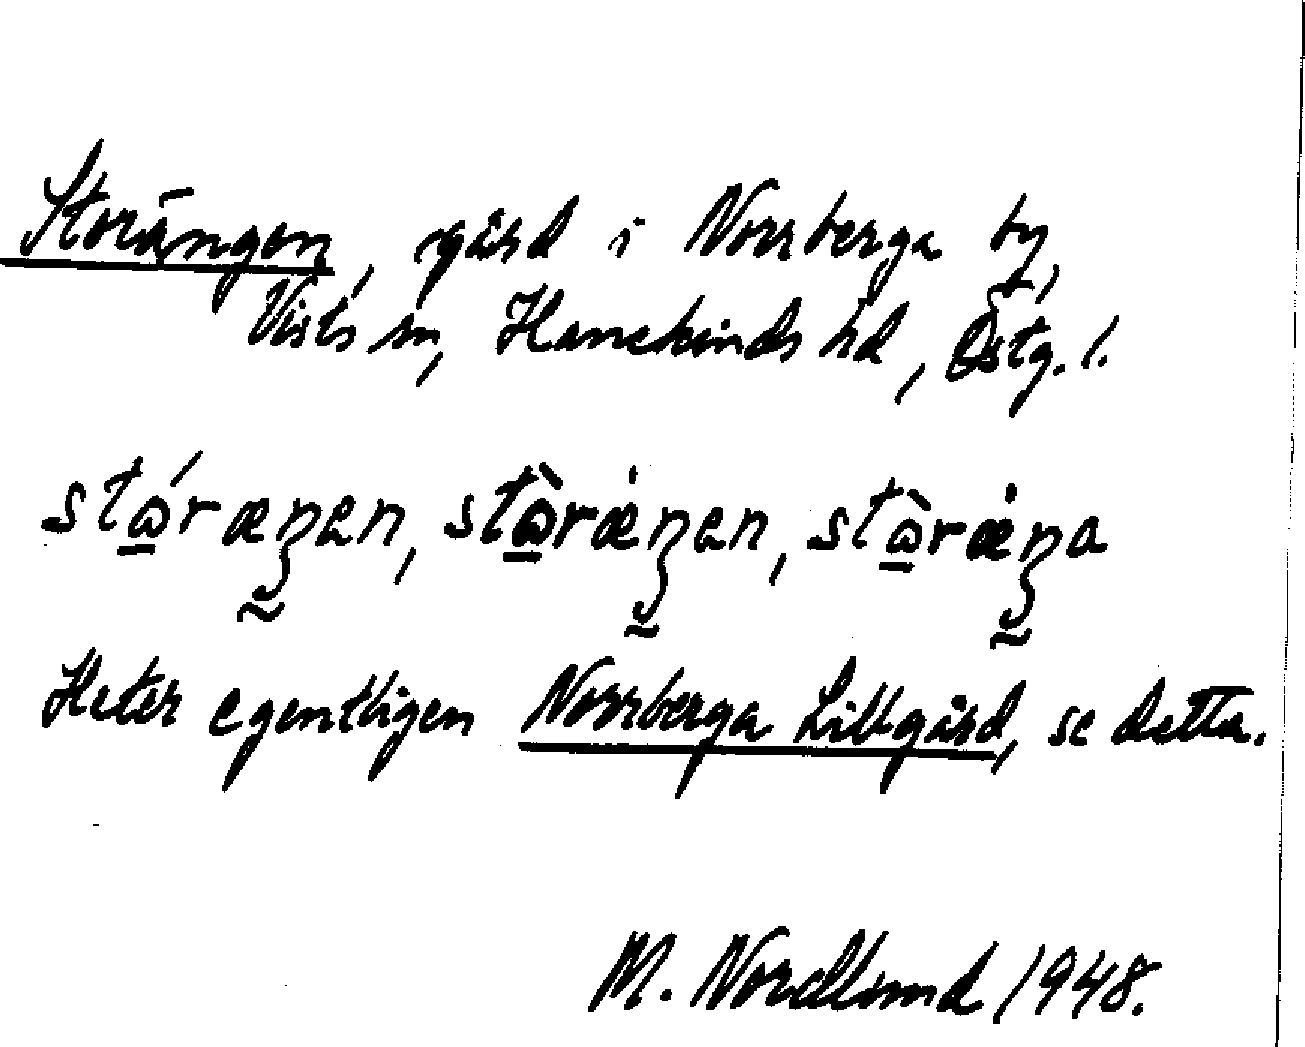 Storängen, gård i Norrberga by,
Vists sn, Hanekinds hd, Östg. l.
stώræŋen, stὼræ̇ŋen, stὼræ̇ŋa
Heter egentligen Norrberga Lillgård, se detta.
M. Nordlund 1948.